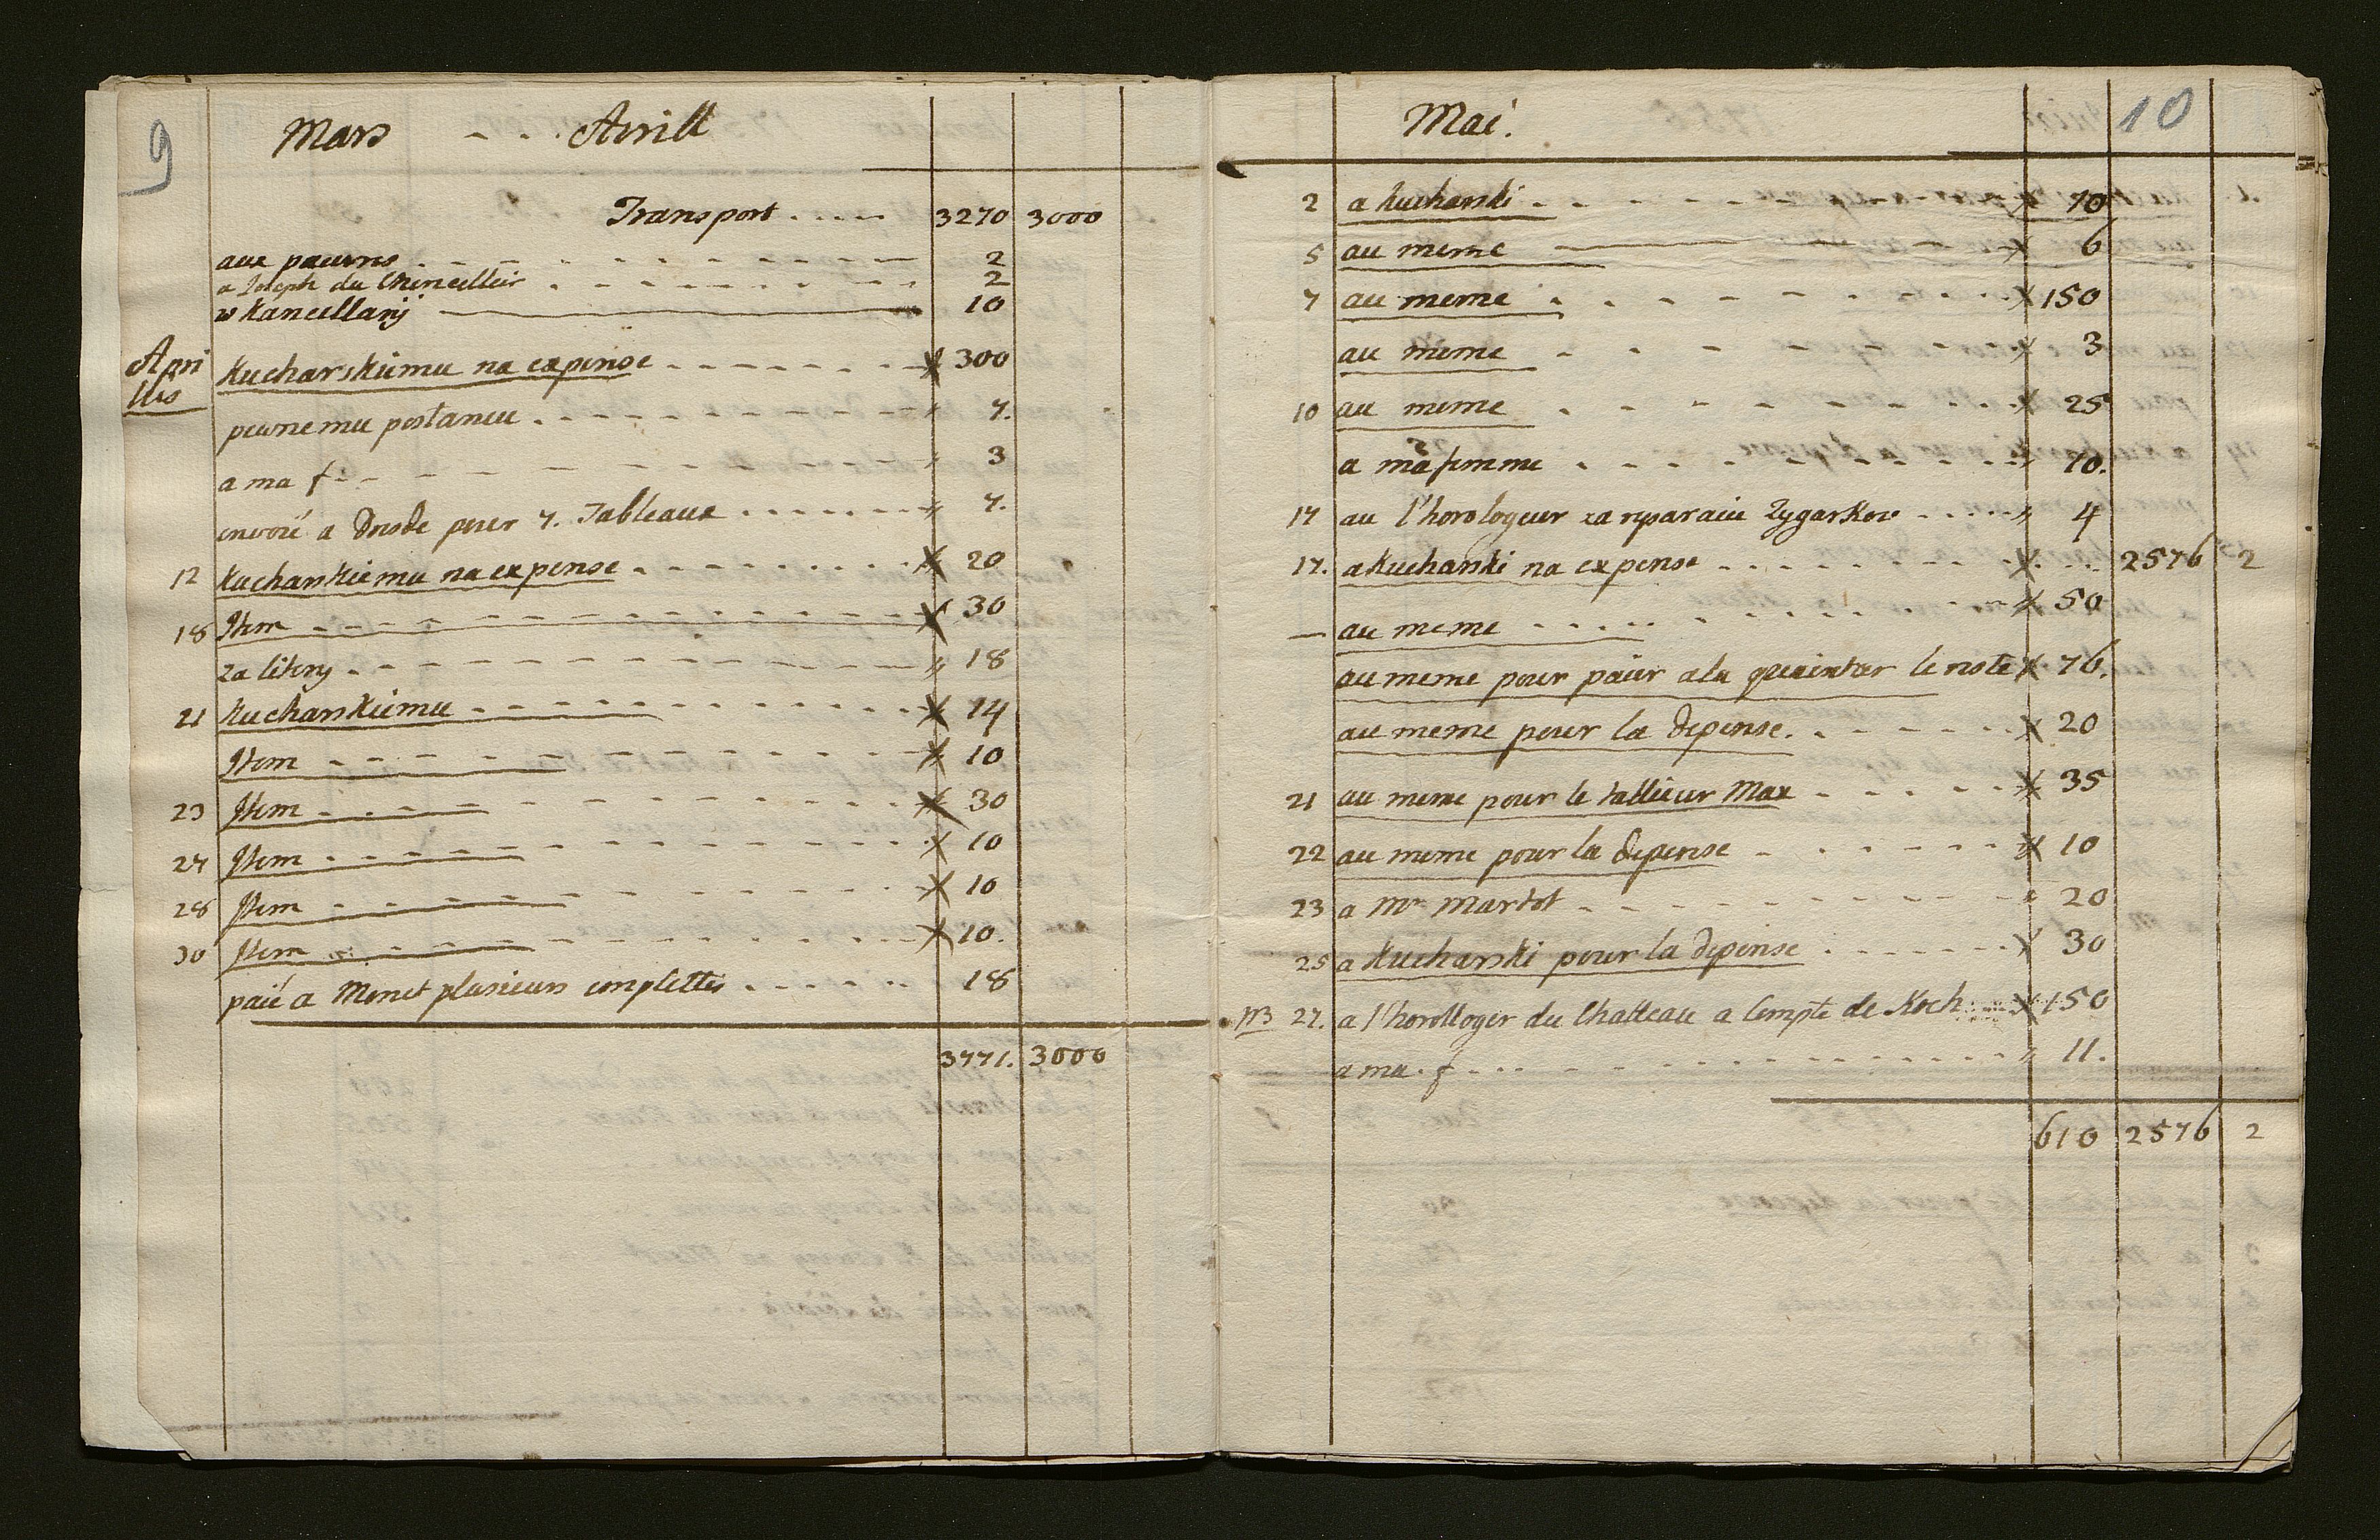 9
Mars - - - Avrill
Transport . . . . . 3270 3000
aux pauvres 2
a Joseph du Chencellier 2
w Kancellarij 10
Apri
llis
Kucharskiemu na expense 300
pewnemu postancu 7.
a ma f: 3
envoié a Dresde pour 7. Tableaux 7.
12 Kucharskiemu na expense 20
18 Item 30
za litery 18
21 Kucharskiemu 14
Item 10
23 Item 30
27 Item 10
28 Item 10
30 Item 10.
paié a Monet plusieurs emplettes 18
3771. 3000
10
Mai.
2 a Kucharski 10
5 au meme 6
7 au meme 150
au meme 3
10 au meme 25
a ma femme 10.
14 au l'horologeur za reparacie Zygarkow 4
17. a Kucharski na expense 2576 2
— au meme 50
au meme pour païer a la le note 76.
au meme pour la depense. 20
21 au meme pour le tallieur Max 35
22 au meme pour la depense 10
23 a Mr Martot 20
25 a Kucharski pour la depense 30
NB 27. a l'horolloger du Chatteau a Compte de Koch 150
a ma . f 11.
610 2576 2